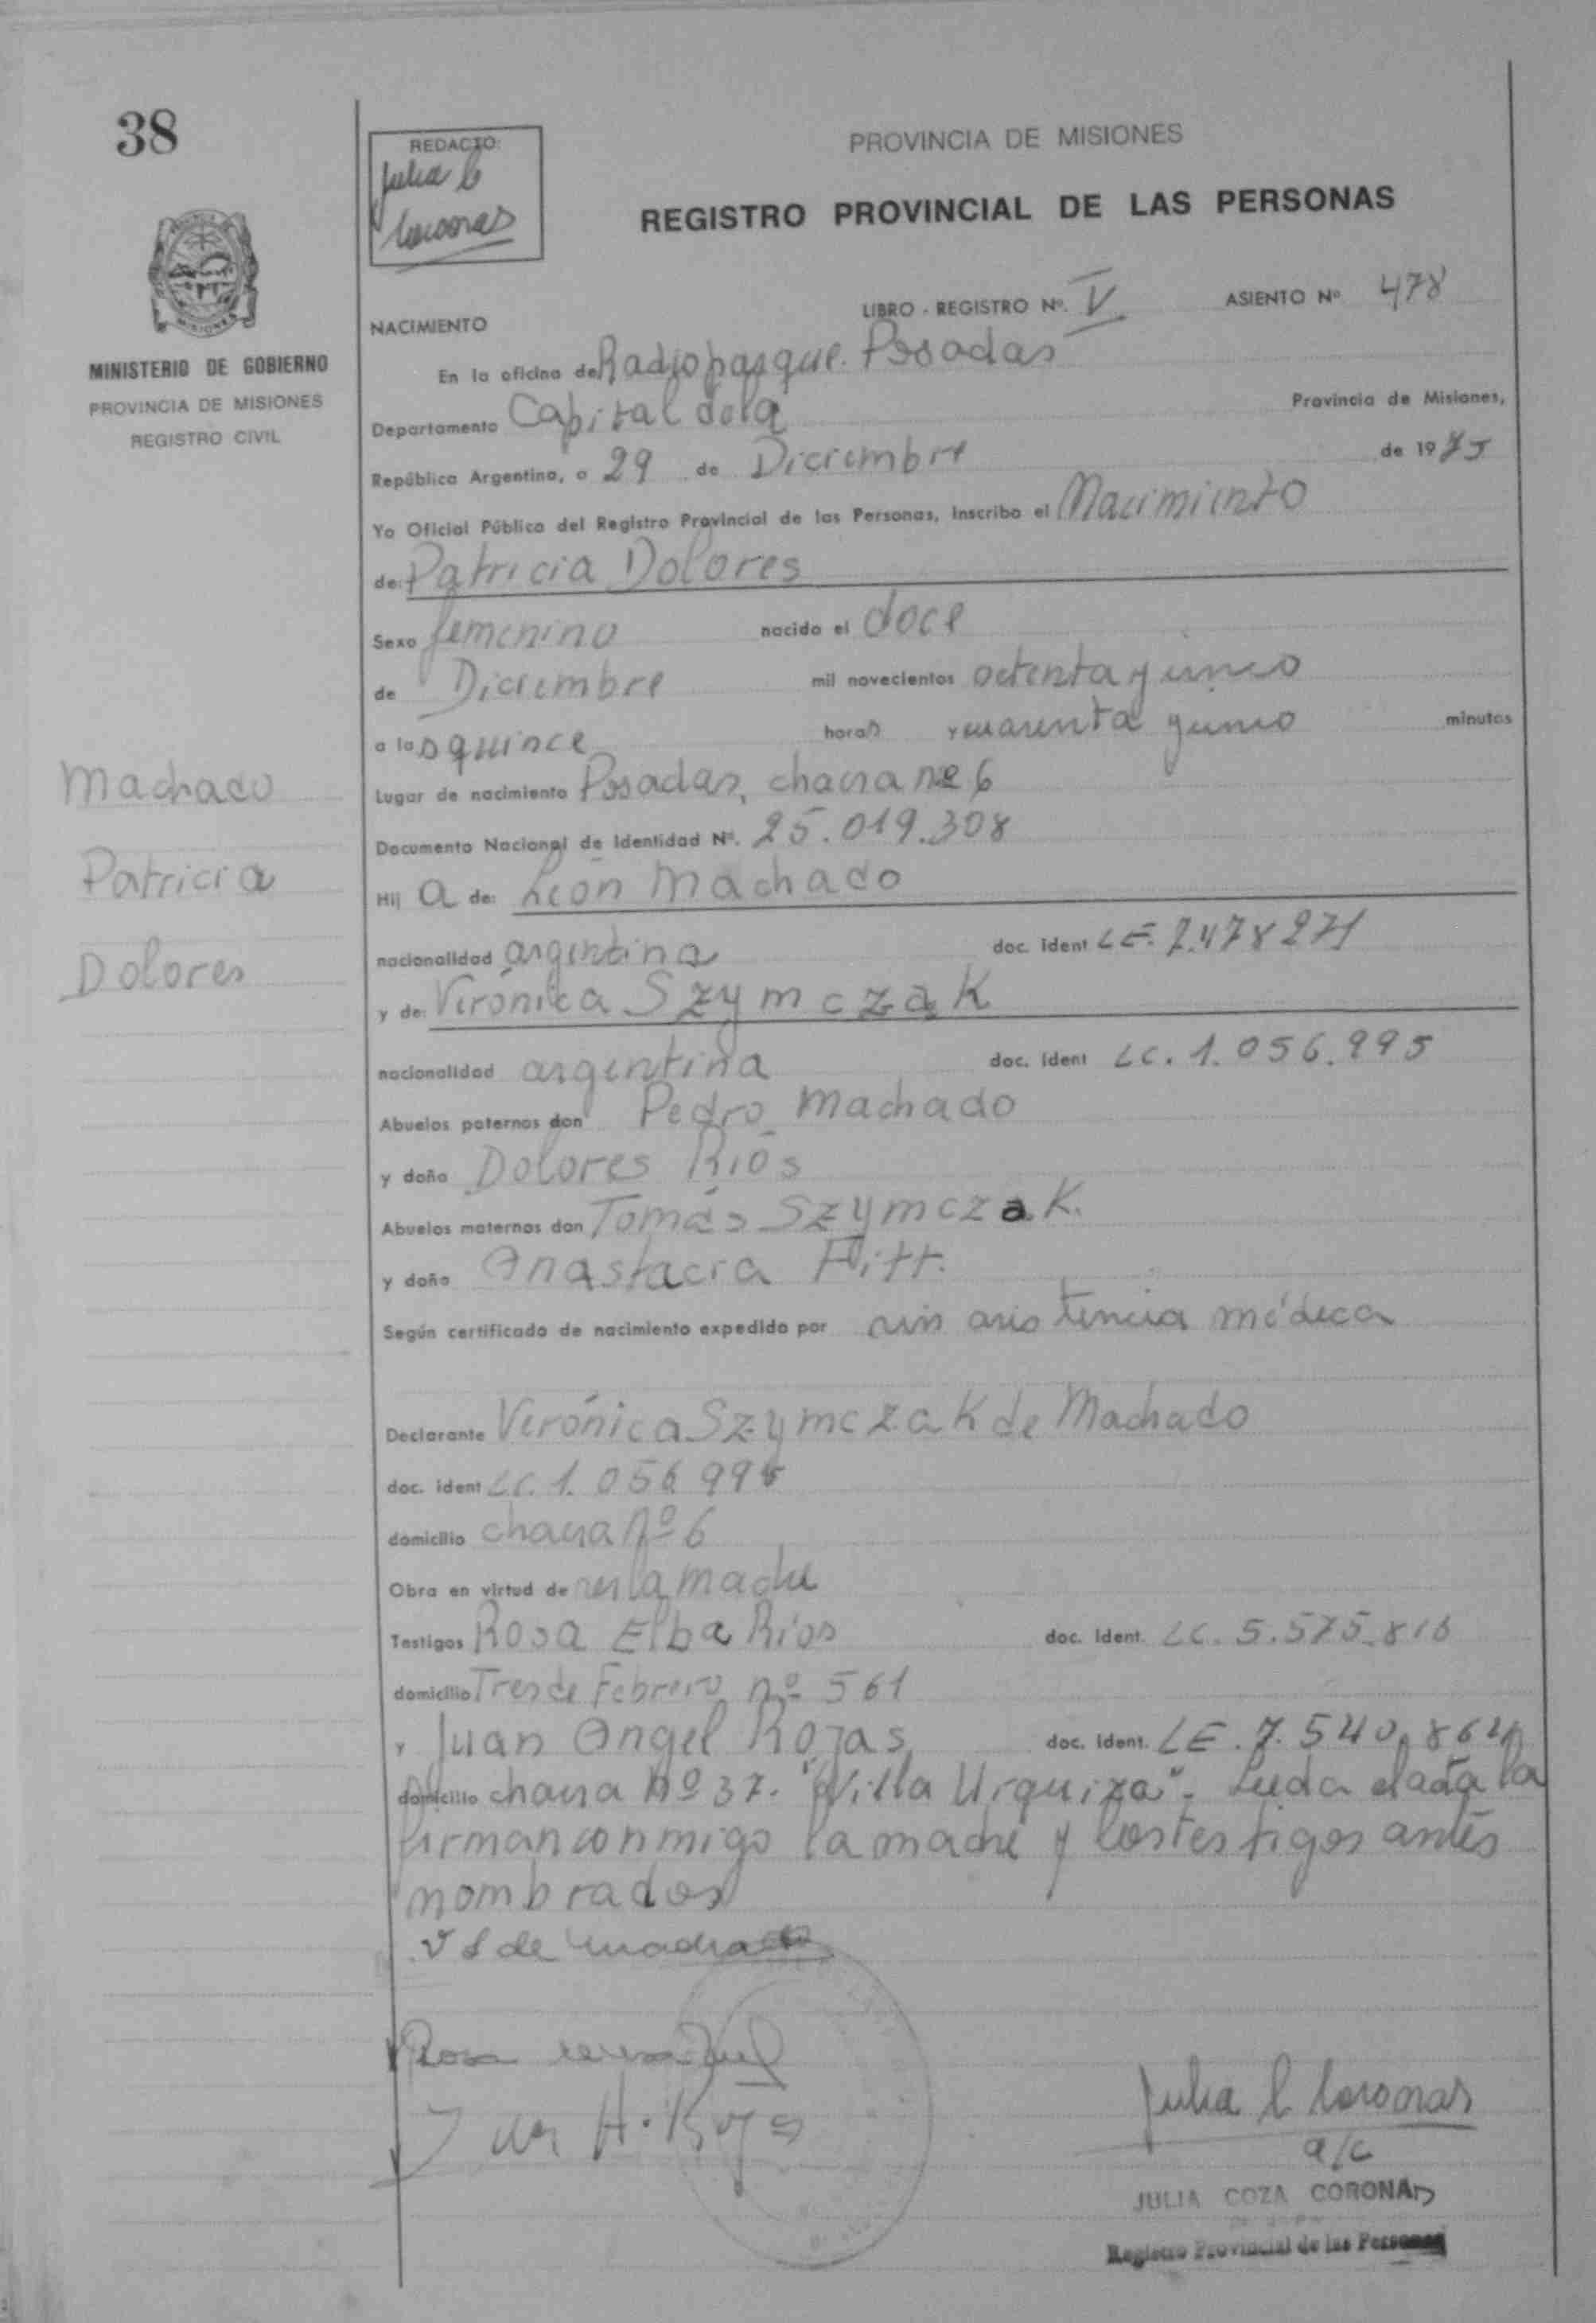 38
REDACTO:
Julia C
Coronas
PROVINCIA DE MISIONES
REGISTRO PROVINCIAL DE LAS PERSONAS
MISIONES
MINISTERIO DE GOBIERNO
PROVINCIA DE MISIONES
REGISTRO CIVIL
LIBRO - REGISTRO Nº. V. ASIENTO Nº 478
NACIMIENTO
En la oficina de Radioparque. Posadas
Departamento Capital dela Provincia de Misiones,
República Argentina, a 29 de Diciembre de 1985
Yo Oficial Público del Registro Provincial de las Personas, inscribo el Nacimiento
de: Patricia Dolores
Sexo femenino nacido el doce
de Diciembre mil novecientos octenta y cinco
a las quince horas y cuarenta y cinco minutos
Lugar de nacimiento Posadas, chacra nº 6
Documento Nacional de Identidad Nº. 25.019.308
Machado
Patricia
Dolores
Hij a de: León Machado
nacionalidad argentina doc. ident LE. 7.478271
y de: Verónica Szymczak
nacionalidad argentina doc. ident LC. 1.056.995
Abuelos paternos don Pedro Machado
y doña Dolores Ríos
Abuelos maternos don Tomás Szymczak.
y doña Anastacia
Según certificado de nacimiento expedido por sin asistencia médica
Declarante Verónica Szymczak de Machado
doc. ident LC. 1.056.995
domicilio chacra Nº 6
Obra en virtud de ser la madre
Testigos Rosa Elba Ríos doc. ident. LC. 5.575.816
domicilio Tres de Febrero nº 561
y Juan Angel Rojas doc. ident. LE. 7.540.864
domicilio chacra Nº 37. "Villa Urquiza". Leída el acta la
firman conmigo la madre y los testigos antes
nombrados
V S de Machado
Rosa
Juan A. Rojas
Julia C Coronas
a/c
JULIA COZA CORONAS
Registro Provincial de las Personas